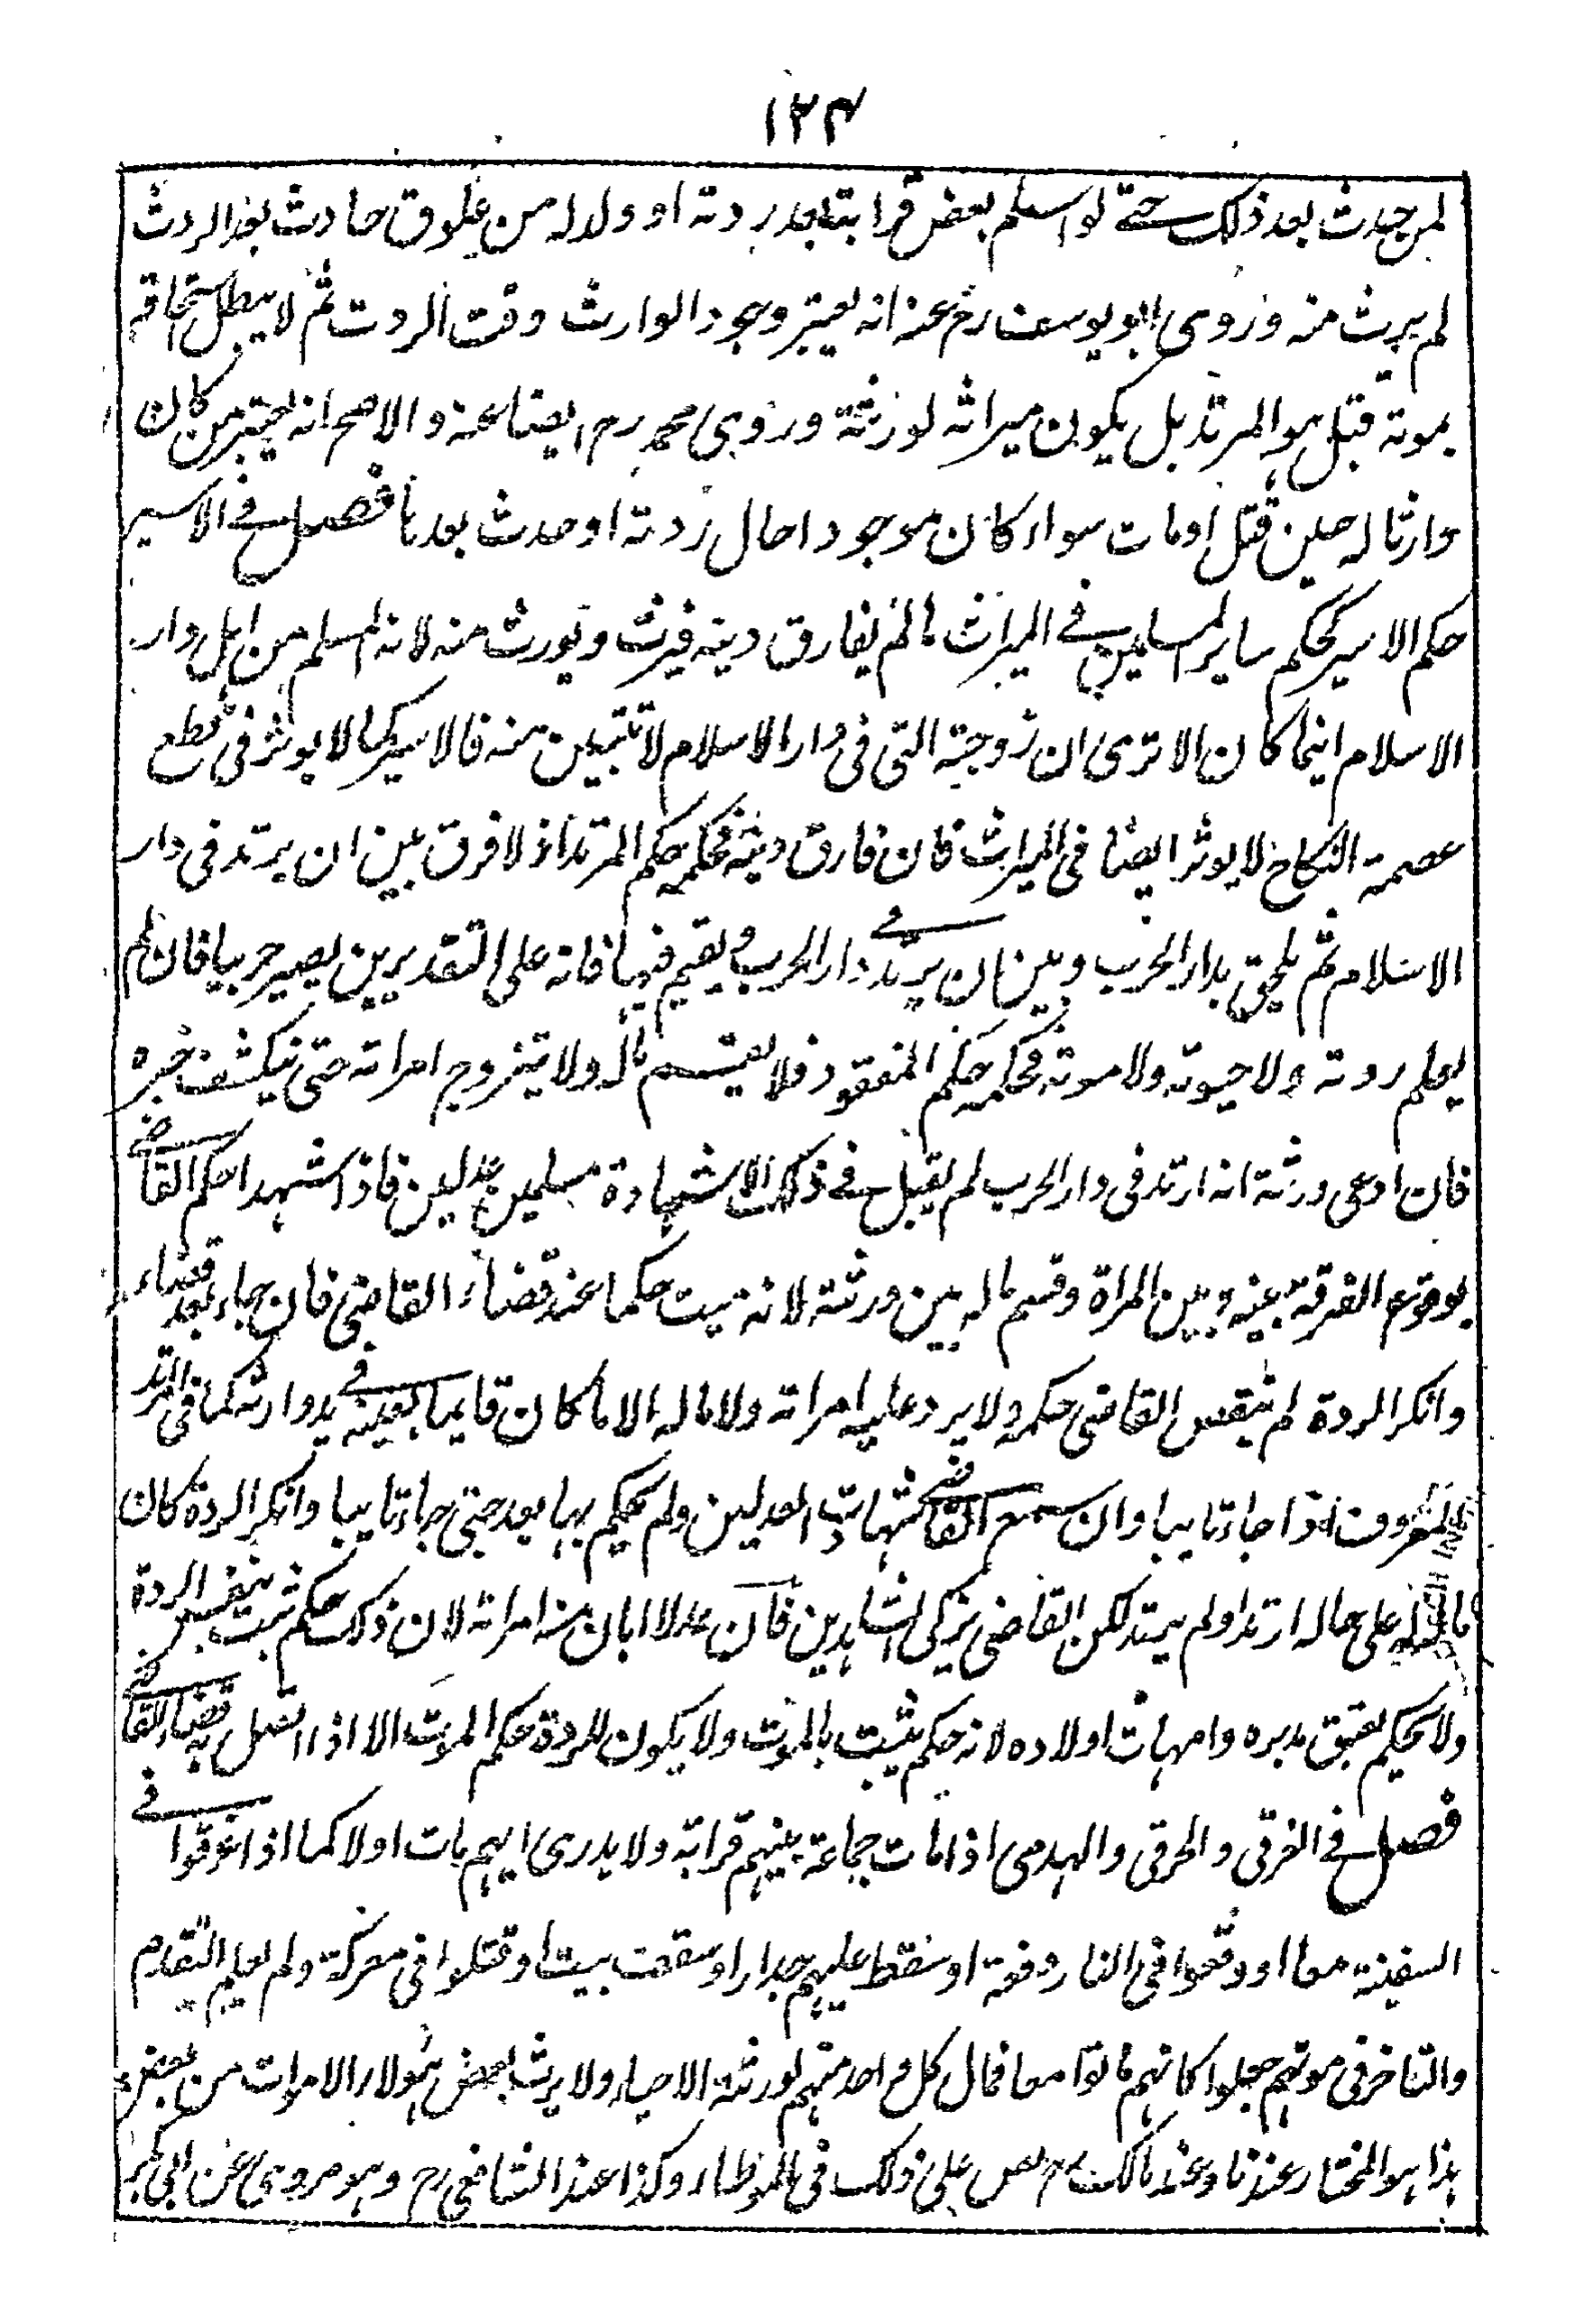 ۱۲۴
لمن حدث بعد ذلك حتى لو اسلم بعض قرابته بعد ردته او ولد له من علوق حادث بعد الردت
لم يرث منه وروى ابو يوسف رح عنه انه يعتبر وجود الوارث وقت الردت ثم لا يبطل استحقاقه
بموته قبل هو المرتد بل يكون ميراثه لورثته وروى محمد رح ايضا عنه والاصح انه يعتبر من كان
وارثا له حين قتل او مات سواء كان موجودا حال ردته او حدث بعدها فصل فى الاسير
حكم الاسير كحكم ساير المسلمين فى الميراث مالم يفارق دينه فيرث ويورث منه لانه المسلم من اهل دار
الاسلام اينما كان الا ترى ان زوجته التى فى دار الاسلام لا تبين منه فالاسير كما لا يوثر فى قطع
عصمة النكاح لا يوثر ايضا فى الميراث فان فارق دينه فحكمه حكم المرتد اذ لا فرق بين ان يرتد فى دار
الاسلام ثم يلحق بدار الحرب وبين ان يرتد فى دار الحرب ويقيم فيها فانه على التقديرين يصير حربيا فان لم
يعلم ردته ولا حيوته ولا موته فحكمه حكم المفقود فلا يقسم ماله ولا يتزوج امراته حتى ينكشف خبره
فان ادعى ورثته انه ارتد فى دار الحرب لم يقبل فى ذلك الا شهادة مسلمين عدلين فاذا شهدا حكم القاضى
بوقوع الفرقة بينه وبين المراة وقسم ماله بين ورثته لانه ميت حكما عند قضاء القاضى فان جاء بعد قضاء
وانكر الردة لم ينقض القاضى حكمه ولا يرد عليه امراته ولا ماله الا ما كان قايما بعينه فى يد وارثه كما فى المرتد
المعروف اذا جاء تايبا وان سمع القاضى شهادت العدلين ولم يحكم بها بعد حتى جاء تايبا وانكر الردة كان
ماله على حاله ارتد او لم يرتد لكن القاضى يزكى الشاهدين فان عدلا ابان منه امراته لان ذلك حكم ثبت بنفس الردة
ولا يحكم بعتق مدبره وامهات اولاده لانه حكم يثبت بالموت ولا يكون للردة حكم الموت الا اذا اتصل به قضاء القاضى
فصل فى الغرقى والحرقى والهدمى اذا مات جماعة بينهم قرابة ولا يدرى ايهم مات اولا كما اذا غرقوا فى
السفينة معا او وقعوا فى النار دفعة او سقط عليهم جدار او سقف بيت او قتلوا فى معركة ولم يعلم التقدم
والتاخر فى موتهم جعلوا كانهم ماتوا معا فمال كل واحد منهم لورثته الاحياء ولا يرث بعض هؤلاء الاموات من بعض
هذا هو المختار عندنا وعند مالك رح نص على ذلك فى الموطا وكذا عند الشافعى رح وهو مروى عن ابى بكر